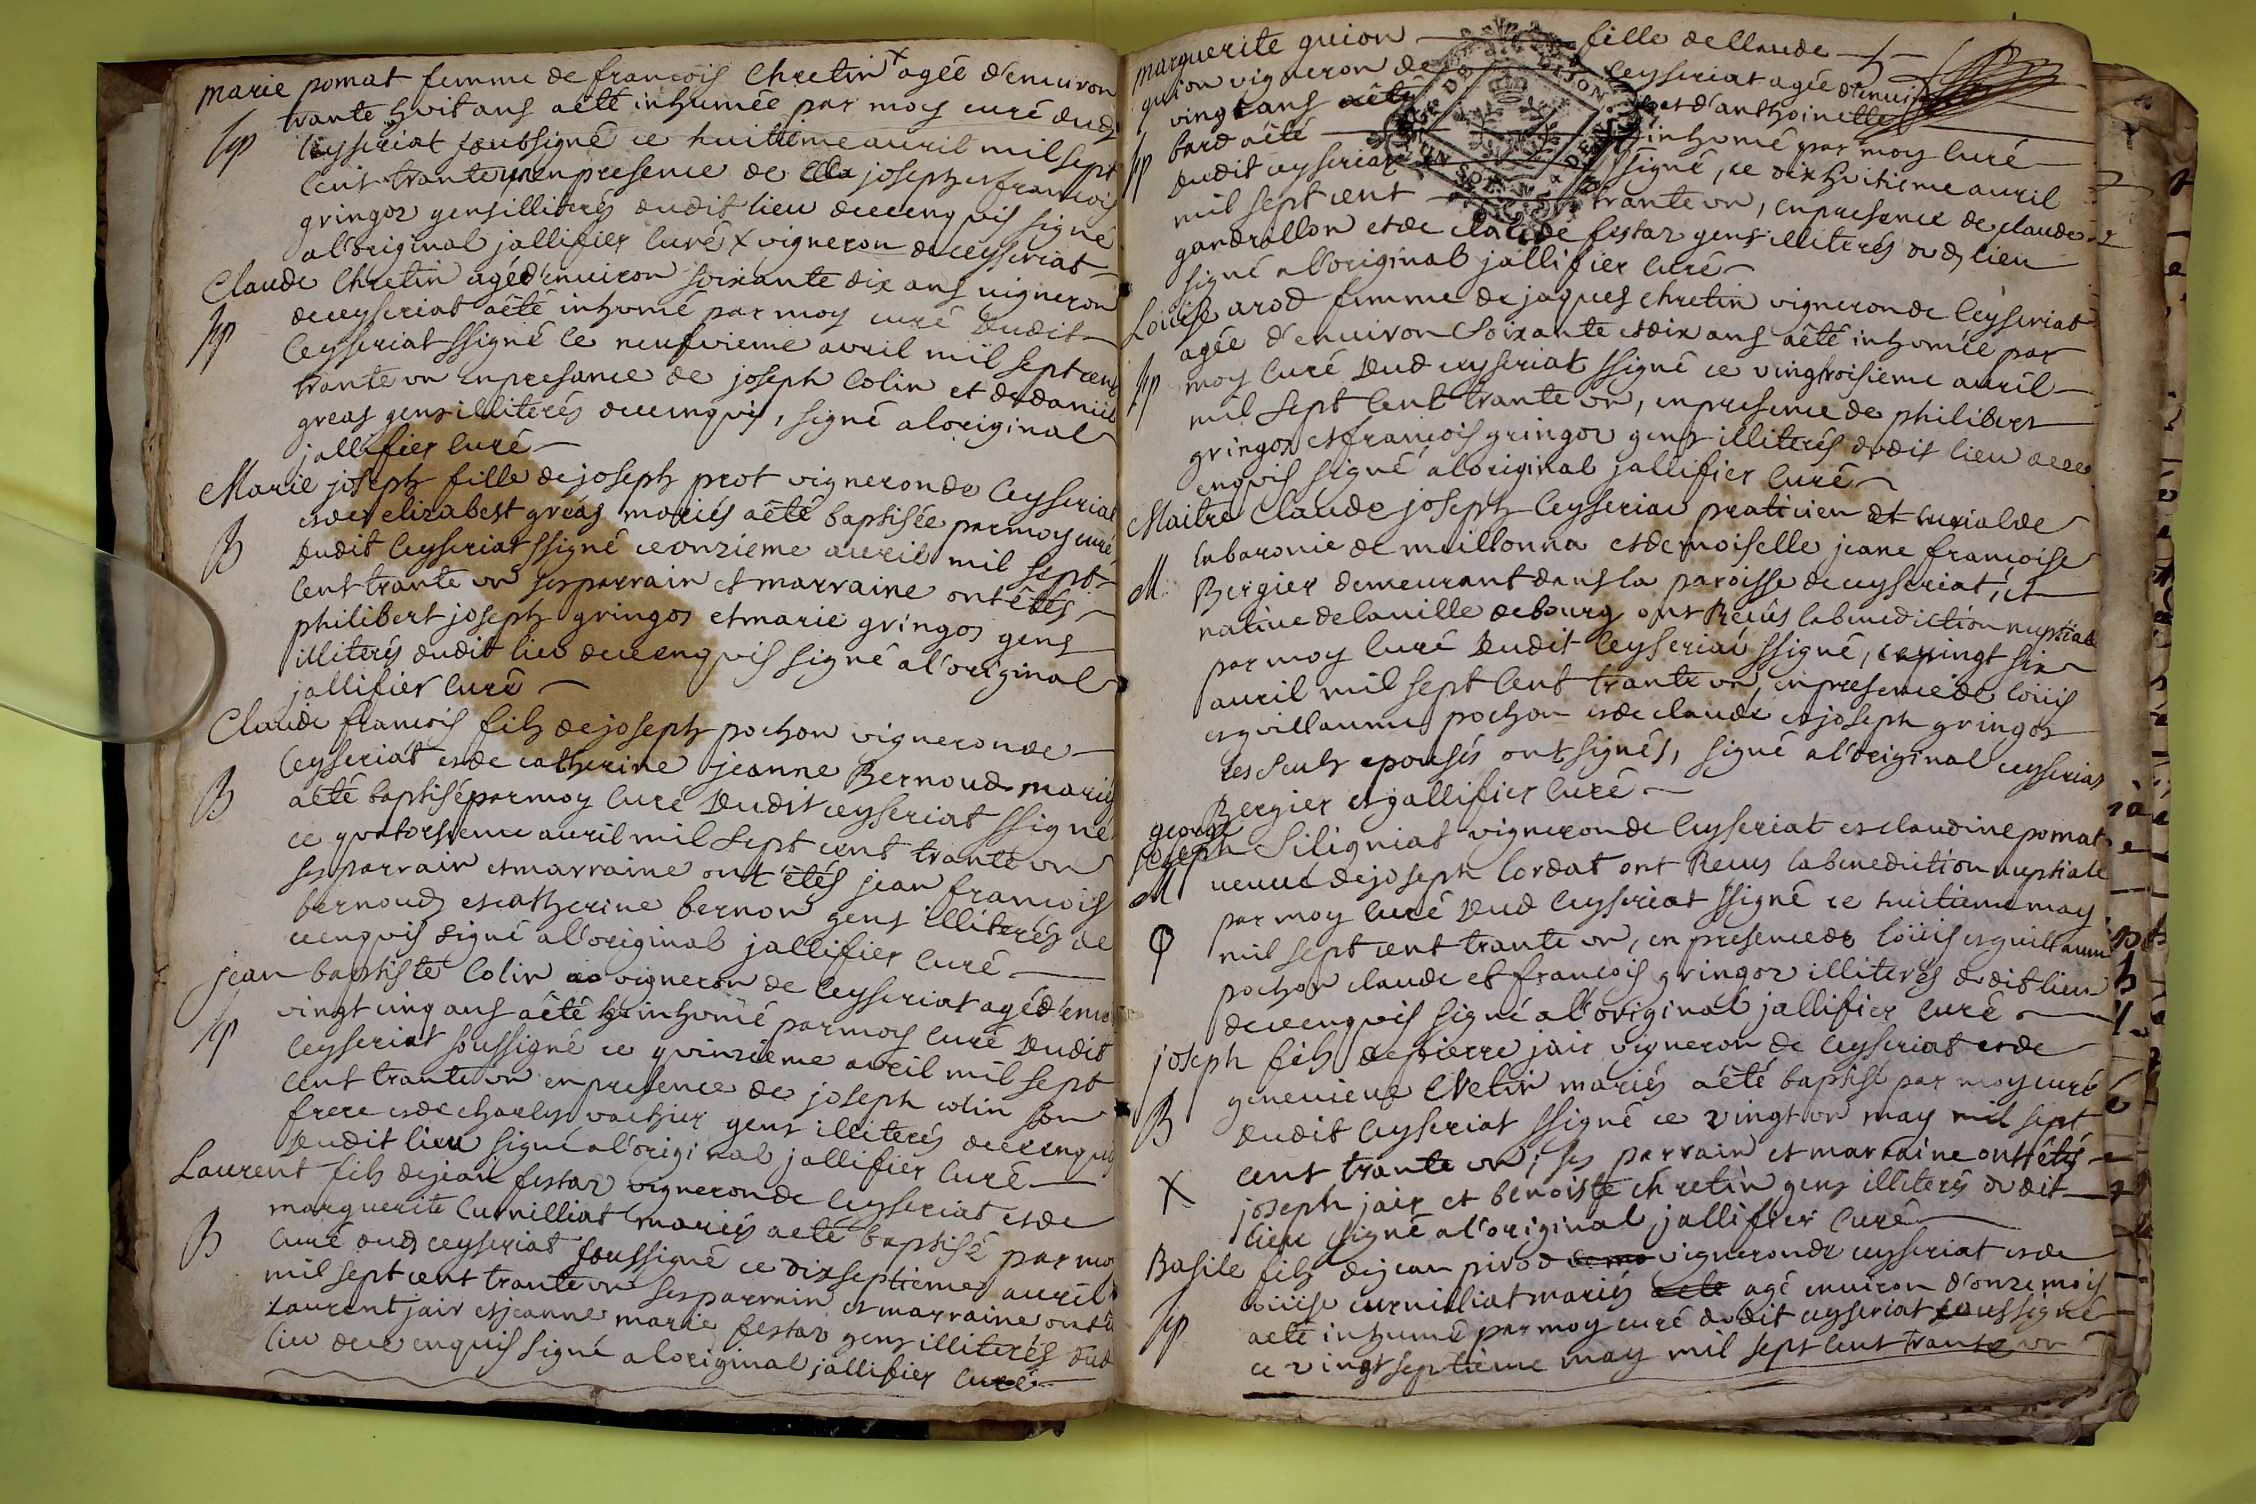 marie pomat femme de françois Chretin x agée d'environ
trante huit ans aêté inhumée par moy curé dud
Sep
Ceyseriat soubsigné ce huittieme auril mil sept
Cent trante un en presence de joseph et francois
gringoz gens illiterés dudit lieu dece enquis signé
a l'original jallifier Curé x vigneron de ceyseriat
Claude Chretin agé d'enuiron soixante dix ans uigneron
deceyseriat aêté inhumé par moy curé dudit
Sep
Ceyseriat ssigné ce neufvieme avril mil sept cent
trante un enpresance de joseph Colin et de daniel
greas gens illiterés dece enquis, signé aloriginal
jallifier Curé
Marie joseph fille de joseph prot vigneron de Ceyseriat
et de elizabest gréas mariés aêté baptisée par moy curé
B
dudit Ceyseriat ssigné ce onzieme auril mil sept
Cent trante un ses parrain et marraine ont êtés
philibert joseph gringoz et marie gringoz gens
illiterés dudit lieu dece enquis signé a l'original
jallifier Curé
Claude francois filz de joseph pochon vigneron de
Ceyseriat et de catherine jeanne Bernoud mariés
B
aêté baptisé par moy Curé dudit ceyseriat ssigné
ce quatorsieme auril mil sept cent trante un
ses parrain et marraine ont êtés jean francois
bernoud et catherine bernon gens illiterés de
ce enquis signé a l'original jallifier Curé
jean baptiste Colin vigneron de Ceyseriat agé d'enuiron
vingt cinq ans aêté inhumé par moy Curé dudit
Sep
Ceyseriat soussigné ce quinzieme avril mil sept
cent trante un en presence de joseph colin son
frere et de charles vachier gens illiterés dece enquis
dudit lieu signé a l'original jallifier Curé
Laurent filz de jean festaz vigneron de Ceyseriat et de
marguerite Curnilliat mariés aeté baptisé par moy
B
Curé dud ceyseriat soussigné ce dixseptieme auril
mil sept cent trante un ses parrain et marraine ont
Laurent jair et jeanne marie festaz gens illiterés dud
lieu dece enquis signé a l'original jallifier Curé
marguerite guion fille de Claude
guion vigneron de Ceyseriat agée d'enui
vingt ans aêté et d'anthoinette
bard aêté inhumé par moy Curé
Sep
dudit ceyseriat ssigné, ce dix huitieme auril
mil sept cent trante un, en presence de claude
gandrollon et de claude festaz gens illiterés dud lieu
signé a l'original jallifier Curé
Loüise arod femme de jaques chretin vigneron de Ceyseriat
agée d'enuiron Soixante et dix ans aêté inhumée par
Sep
moy Curé dud ceyseriat ssigné ce vingtroisieme auril
mil sept Cent trante un, en presence de philibert
gringoz et françois gringoz gens illiterés dudit lieu dece
enquis signé a l'original jallifier Curé
Maitre Claude joseph Ceyseriat praticien et curial de
labaronie de meillonna et demoiselle jeane françoise
M
Bergier demeurant dans la paroisse de ceyseriat, et
natiue de lauille de bourg ont Reçûs labenediction nuptiale
par moy Curé dudit Ceyseriat ssigné, ce vingt six
auril mil sept Cent trante un, en presence de loüis
et guillaume pochon et de claude et joseph gringoz
les seuls epousés ont signés, signé a l'original ceyseriat
Bergier et jallifier Curé
george
joseph Siligniat vigneron de Ceyseriat et claudine pomat
M
ueuue de joseph Cordat ont Recus labenediction nuptiale
par moy Curé dud Ceyseriat ssigné ce huitieme may
mil sept cent trante un, en presence de loüis et guillaume
pochon claude et francois gringoz illiterés dudit lieu
dece enquis signé a l'original jallifier Curé
joseph filz de pierre jair vigneron de ceyseriat et de
genevieue Chretin mariés aêté baptisé par moy curé
B
dudit Ceyseriat ssigné ce vingt un may mil sept
cent trante un, ses parrain et marraine ont êtés
X
joseph jair et benoiste chretin gens illiterés dudit
lieu signé a l'original jallifier Curé
Basile filz de jean pirod vigneron de ceyseriat et de
loüise curnilliat mariés agé enuiron d'onze mois
Sep
aeté inhumé par moy curé dudit ceyseriat soussigné
ce vingt septieme may mil sept cent trante un